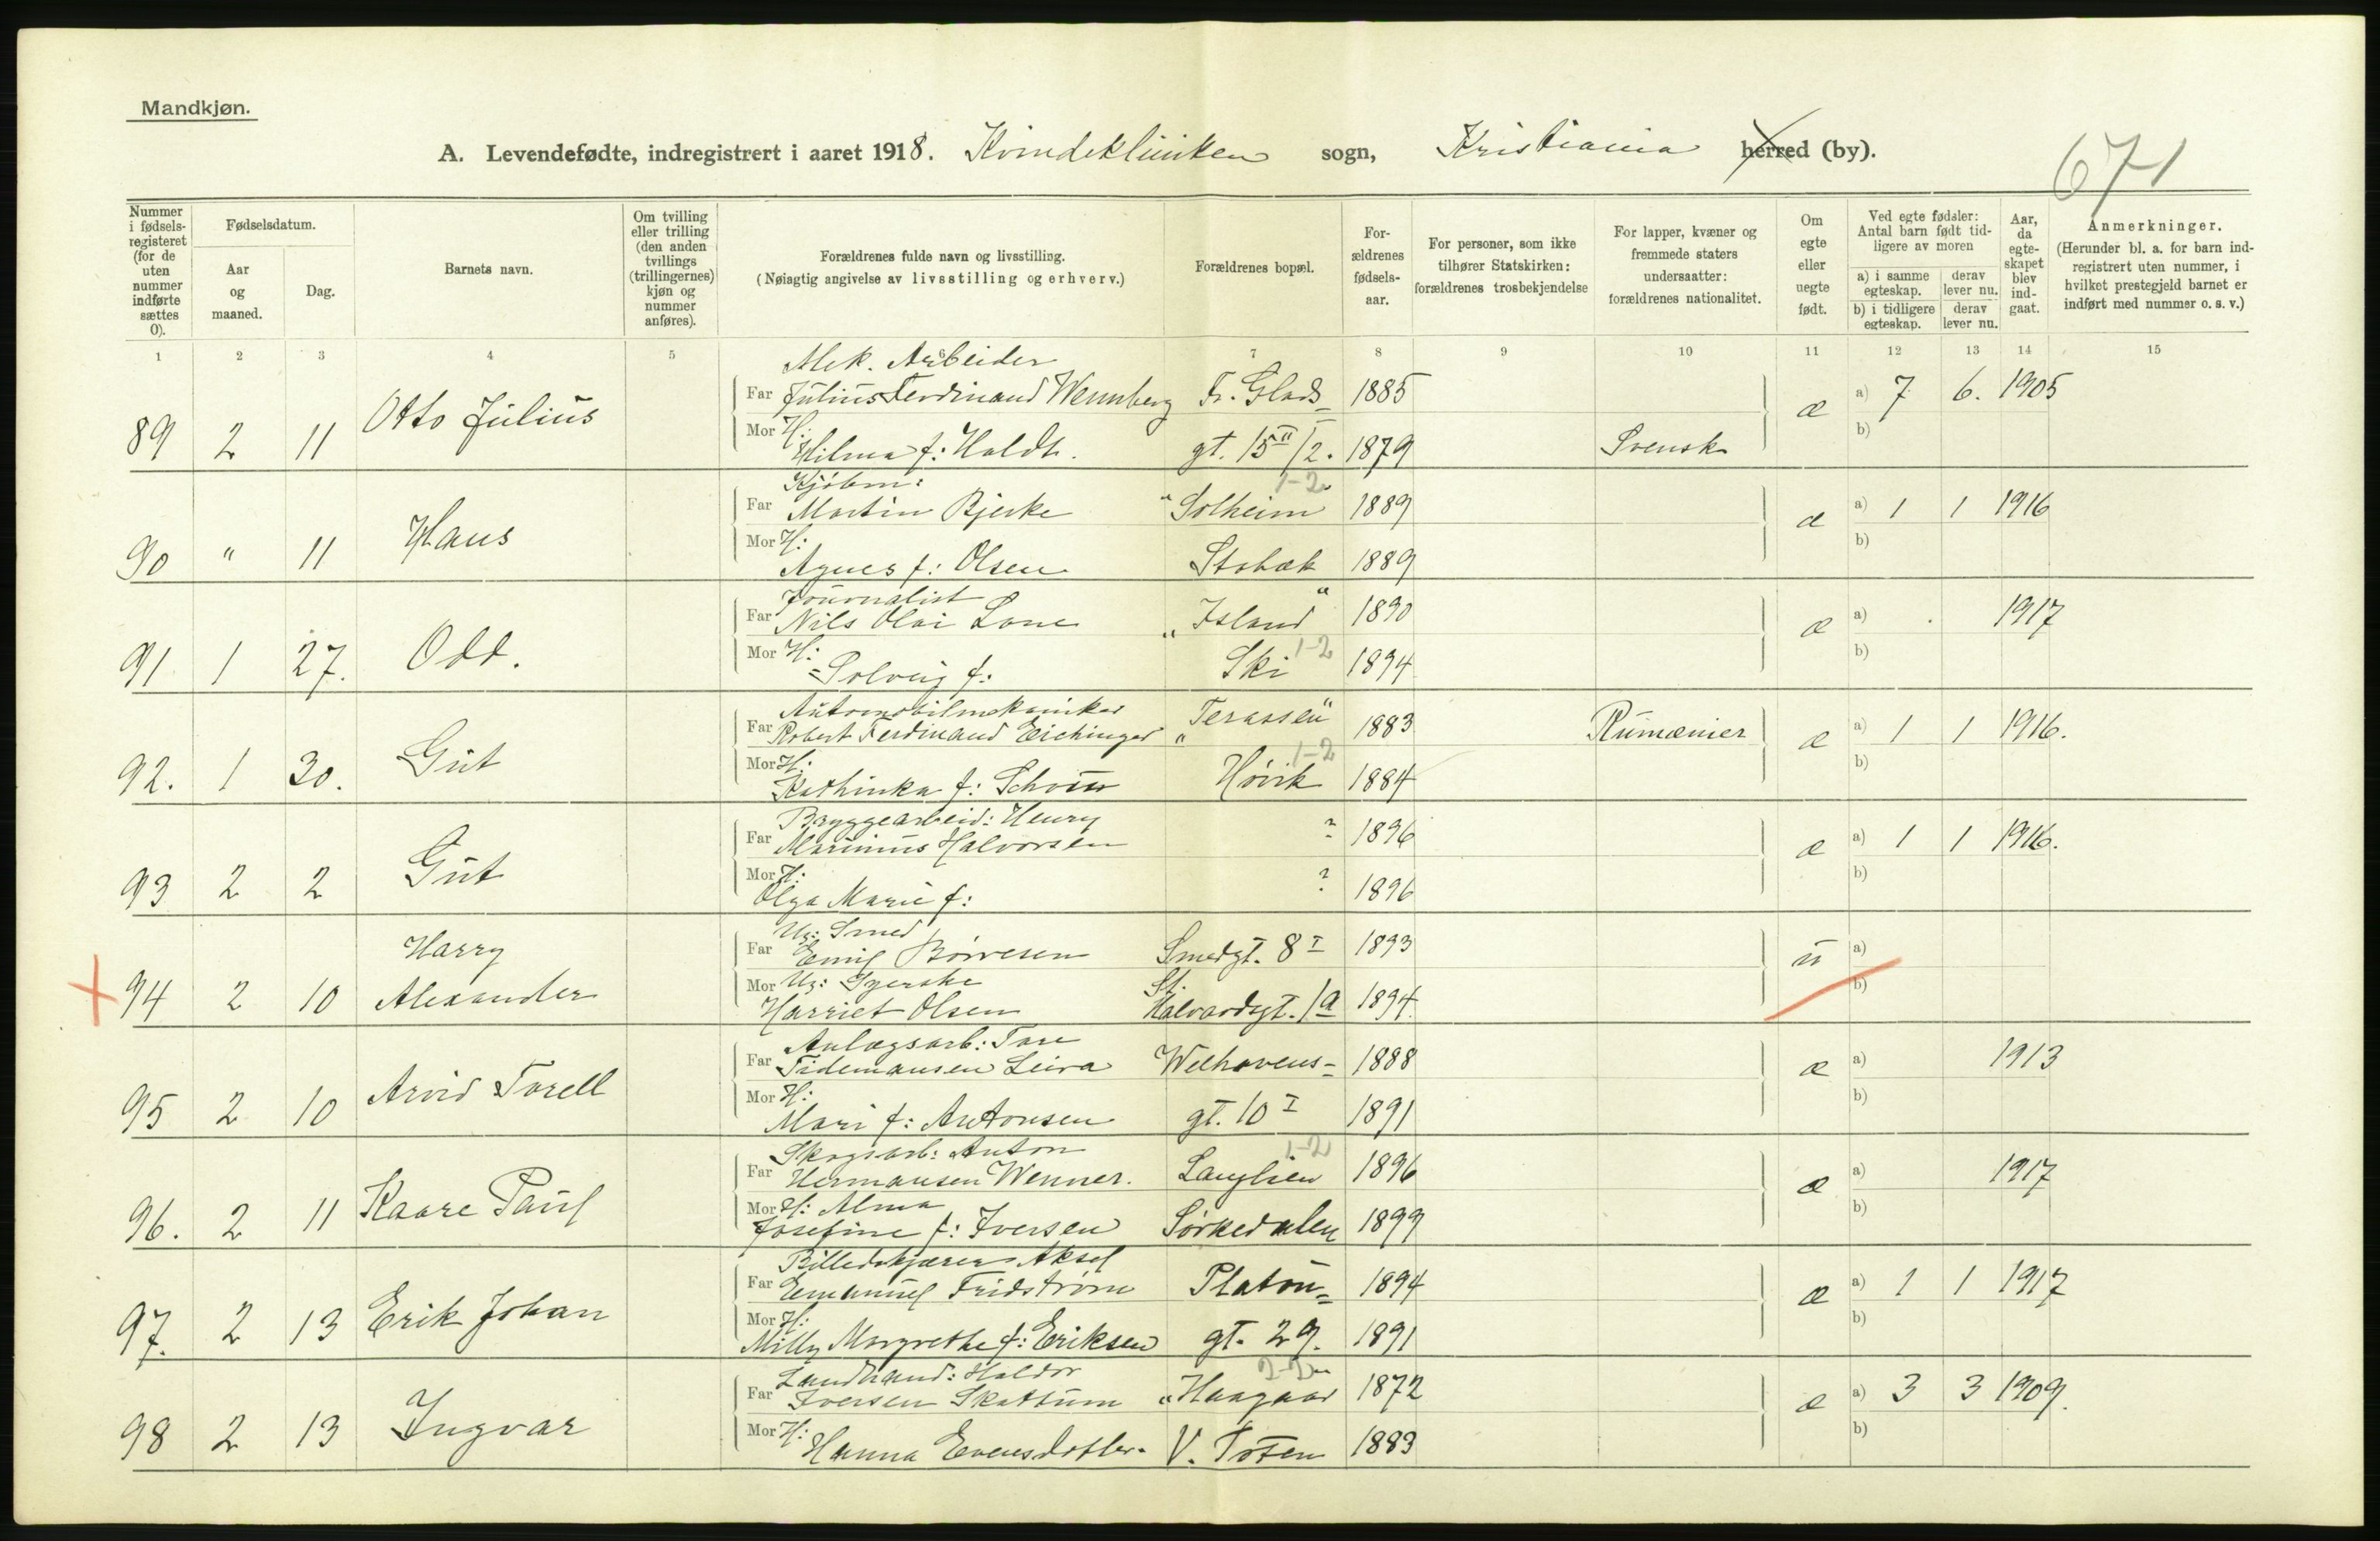 Mandkjøn.
A. Levendefødte, indregistrert i aaret 1918. Kvindeklinikken sogn, Kristiania herred (by).
671
Nummer i fødsels-registeret (for de uten nummer indførte sættes 0).
Fødselsdatum.
Aar og maaned.
Dag.
Barnets navn.
Om tvilling eller trilling (den anden tvillings (trillingernes) kjøn og nummer anføres).
Forældrenes fulde navn og livsstilling.
(Nøiagtig angivelse av livsstilling og erhverv.)
Forældrenes bopæl.
For-ældrenes fødsels-aar.
For personer, som ikke tilhører Statskirken: forældrenes trosbekjendelse
For lapper, kvæner og fremmede staters undersaatter: forældrenes nationalitet.
Om egte eller uegte født.
Ved egte fødsler: Antal barn født tid-ligere av moren
a) i samme egteskap. derav lever nu.
b) i tidligere egteskap. derav lever nu.
Aar, da egte-skapet blev ind-gaat.
Anmerkninger.
(Herunder bl. a. for barn ind-registrert uten nummer, i hvilket prestegjeld barnet er indført med nummer o. s. v.)
1 2 3 4 5 6 7 8 9 10 11 12 13 14 15
Mek. Arbeider
Far Julius Ferdinand Wennberg Fr. Glads- 1885 a) 7 6. 1905
89 2 11 Otto Julius æ
Mor H: Hilma f: Holdt. gt. 15 II/2. 1879 Svensk b)
Kjøbm: 1-2
Far Martin Bjerke "Solheim" 1889 a) 1 1 1916
90 " 11 Hans æ
Mor H: Agnes f: Olsen Stabæk 1889 b)
Journalist
Far Nils Olai Lone "Island" 1890 a) 1917
91 1 27. Odd. æ
Mor H: Solveig f: Ski 1-2 1894 b)
Automobilmekaniker
Far Robert Ferdinand Eichinger "Terassen" 1883 Rumænier a) 1 1 1916.
92. 1 30. Gut æ
Mor H: Kathinka f: Høvik 1-2 1884 b)
Bryggearbeid: Henry
Far Marinius Halvorsen ? 1896 a) 1 1 1916.
93 2 2 Gut æ
Mor H: Olga Marie f: ? 1896 b)
Ug: Smed
Far Emil Børresen Smedgt. 8 I 1893 a)
94 2 10 Harry Alexander u
Mor Ug: Syerske
Harriet Olsen St. Halvardsgt. 1a 1894. b)
Anlægsarb: Tore
Far Tidemansen Leira Welhavens- 1888 a) 1913
95 2 10 Arvid Torell æ
Mor H: Mari f: Antonsen gt. 10 I 1891 b)
Skogsarb: Anton 1-2
Far Hermansen Wenner. Langlien 1896 a) 1917
96. 2 11 Kaare Paul æ
Mor H: Alma
Josefine f: Iversen Sørkedalen 1899 b)
Billedskjærer Aksel
Far Emanuel Fridstrøm Platou- 1894 a) 1 1 1917
97. 2 13 Erik Johan æ
Mor H: Milly Margrethe f: Eriksen gt. 29. 1891 b)
Landhand: Haldor 2-2
Far Iversen Skattum "Haagaar" 1872 a) 3 3 1909.
98 2 13 Ingvar æ
Mor H: Hanna Evensdatter. V. Toten 1883 b)